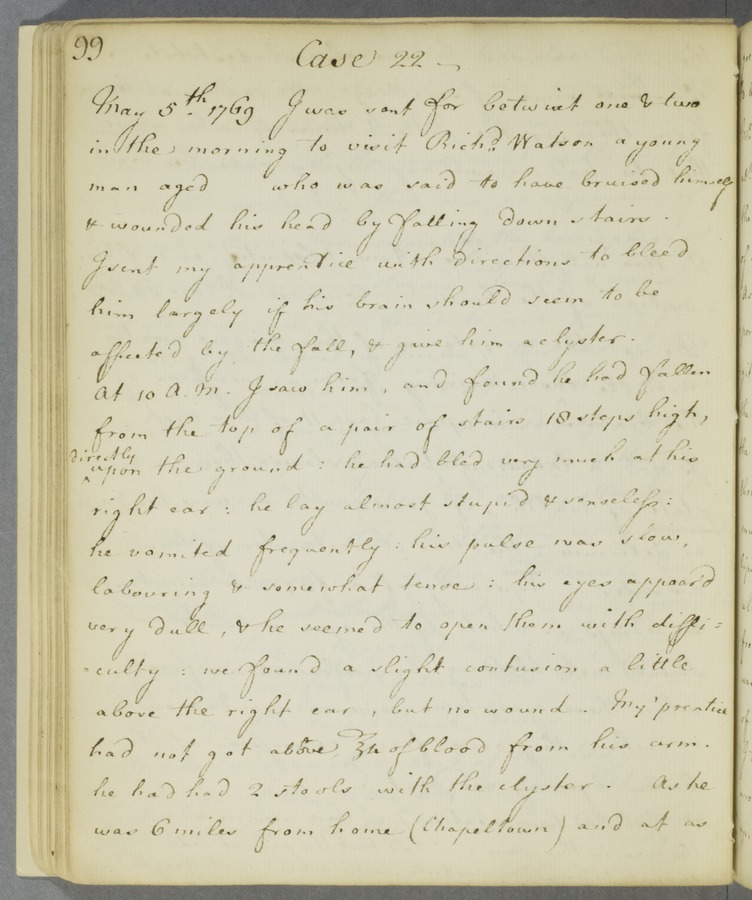 99
Case 22
May 5th. 1769 I was sent for betwixt one & two
in the morning to visit Richd. Watson a young
man aged who was said to have bruised himself
& wounded his head by falling down stairs.
I sent my apprentice with directions to bleed
him largely if his brain should seem to be
affected by the fall, & give him a clyster.
At 10 A.M. I saw him, and found he had fallen
from the top of a pair of stairs 18 steps high,
directly
^ upon the ground: he had bled very much at his
right ear: he lay almost stupid & senseless:
he vomited frequently: his pulse was slow,
labouring & somewhat tense: his eyes appear'd
very dull, & he seemed to open them with diffi=
=culty: we found a slight contusion a little
above the right ear, but no wound. My 'prentice
had not got above of blood from his arm.
he had had 2 stools with the clyster. As he
was 6 miles from home (Chapeltown) and at as